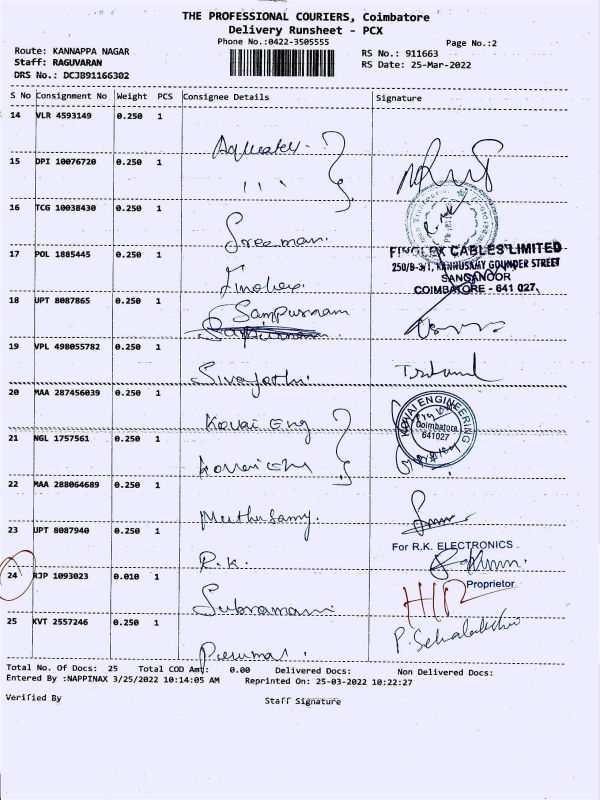 THE PROFESSIONAL COURIERS, Coimbatore
Delivery Runsheet - PCX
Phone No.:0422-3505555
Page No.:2
Route: KANNAPPA NAGAR
RS No.: 911663
Staff: RAGUVARAN
RS Date: 25-Mar-2022
DRS No.: DCJB91166302
S No Consignment No Weight PCS Consignee Details Signature
14 VLR 4593149 0.250 1
15 DPI 10076720 0.250 1
16 TCG 10038430 0.250 1 Sreemani.
17 POL 1885445 0.250 1 Finolex.
FINOLEX CABLES LIMITED
250/B-3/1, KANNUSAMY GOUNDER STREET
SANGANOOR
COIMBATORE - 641 027.
18 UPT 8087865 0.250 1 Sampurnam
19 VPL 498055782 0.250 1 Sivajothi.
20 MAA 287456039 0.250 1 Kovai Eng
KOVAI ENGINEERING
Coimbatore
641027
21 NGL 1757561 0.250 1 Kovai Eng
22 MAA 288064689 0.250 1 Muthusamy.
23 UPT 8087940 0.250 1 R.K.
For R.K. ELECTRONICS
Proprietor
24 RJP 1093023 0.010 1 Subramani
25 KVT 2557246 0.250 1
Total No. Of Docs: 25 Total COD Amt: 0.00 Delivered Docs: Non Delivered Docs:
Entered By :NAPPINAX 3/25/2022 10:14:05 AM Reprinted On: 25-03-2022 10:22:27
Verified By
Staff Signature